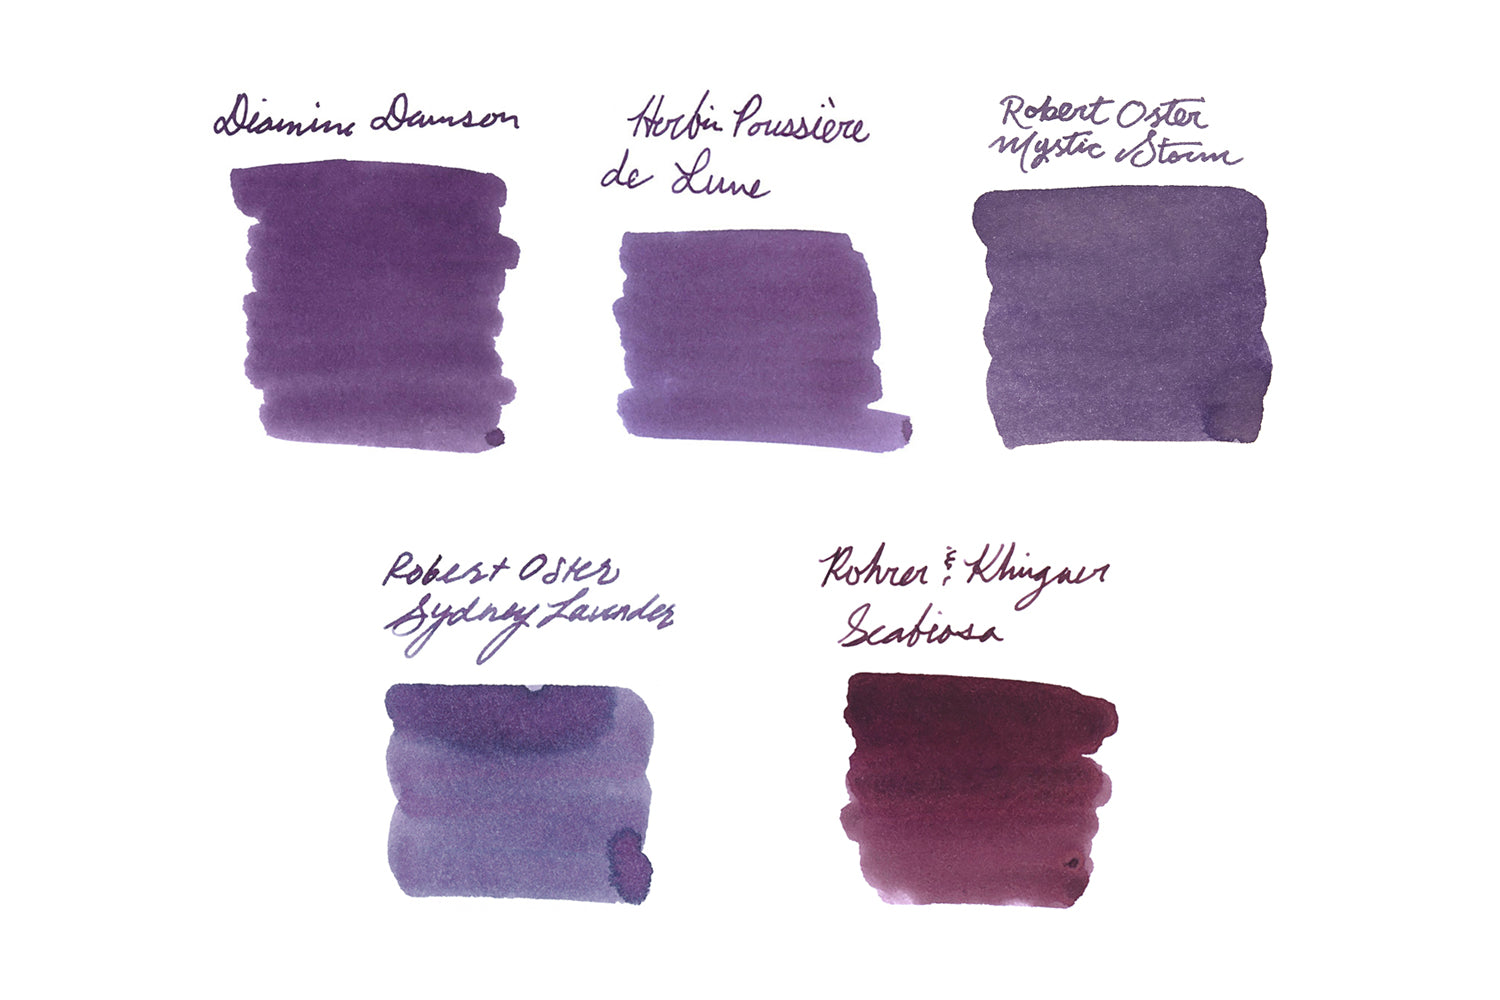 Diamine Damson
Herbin Poussière
de Lune
Robert Oster
Mystic Storm
Robert Oster
Sydney Lavender
Rohrer & Klingner
Scabiosa